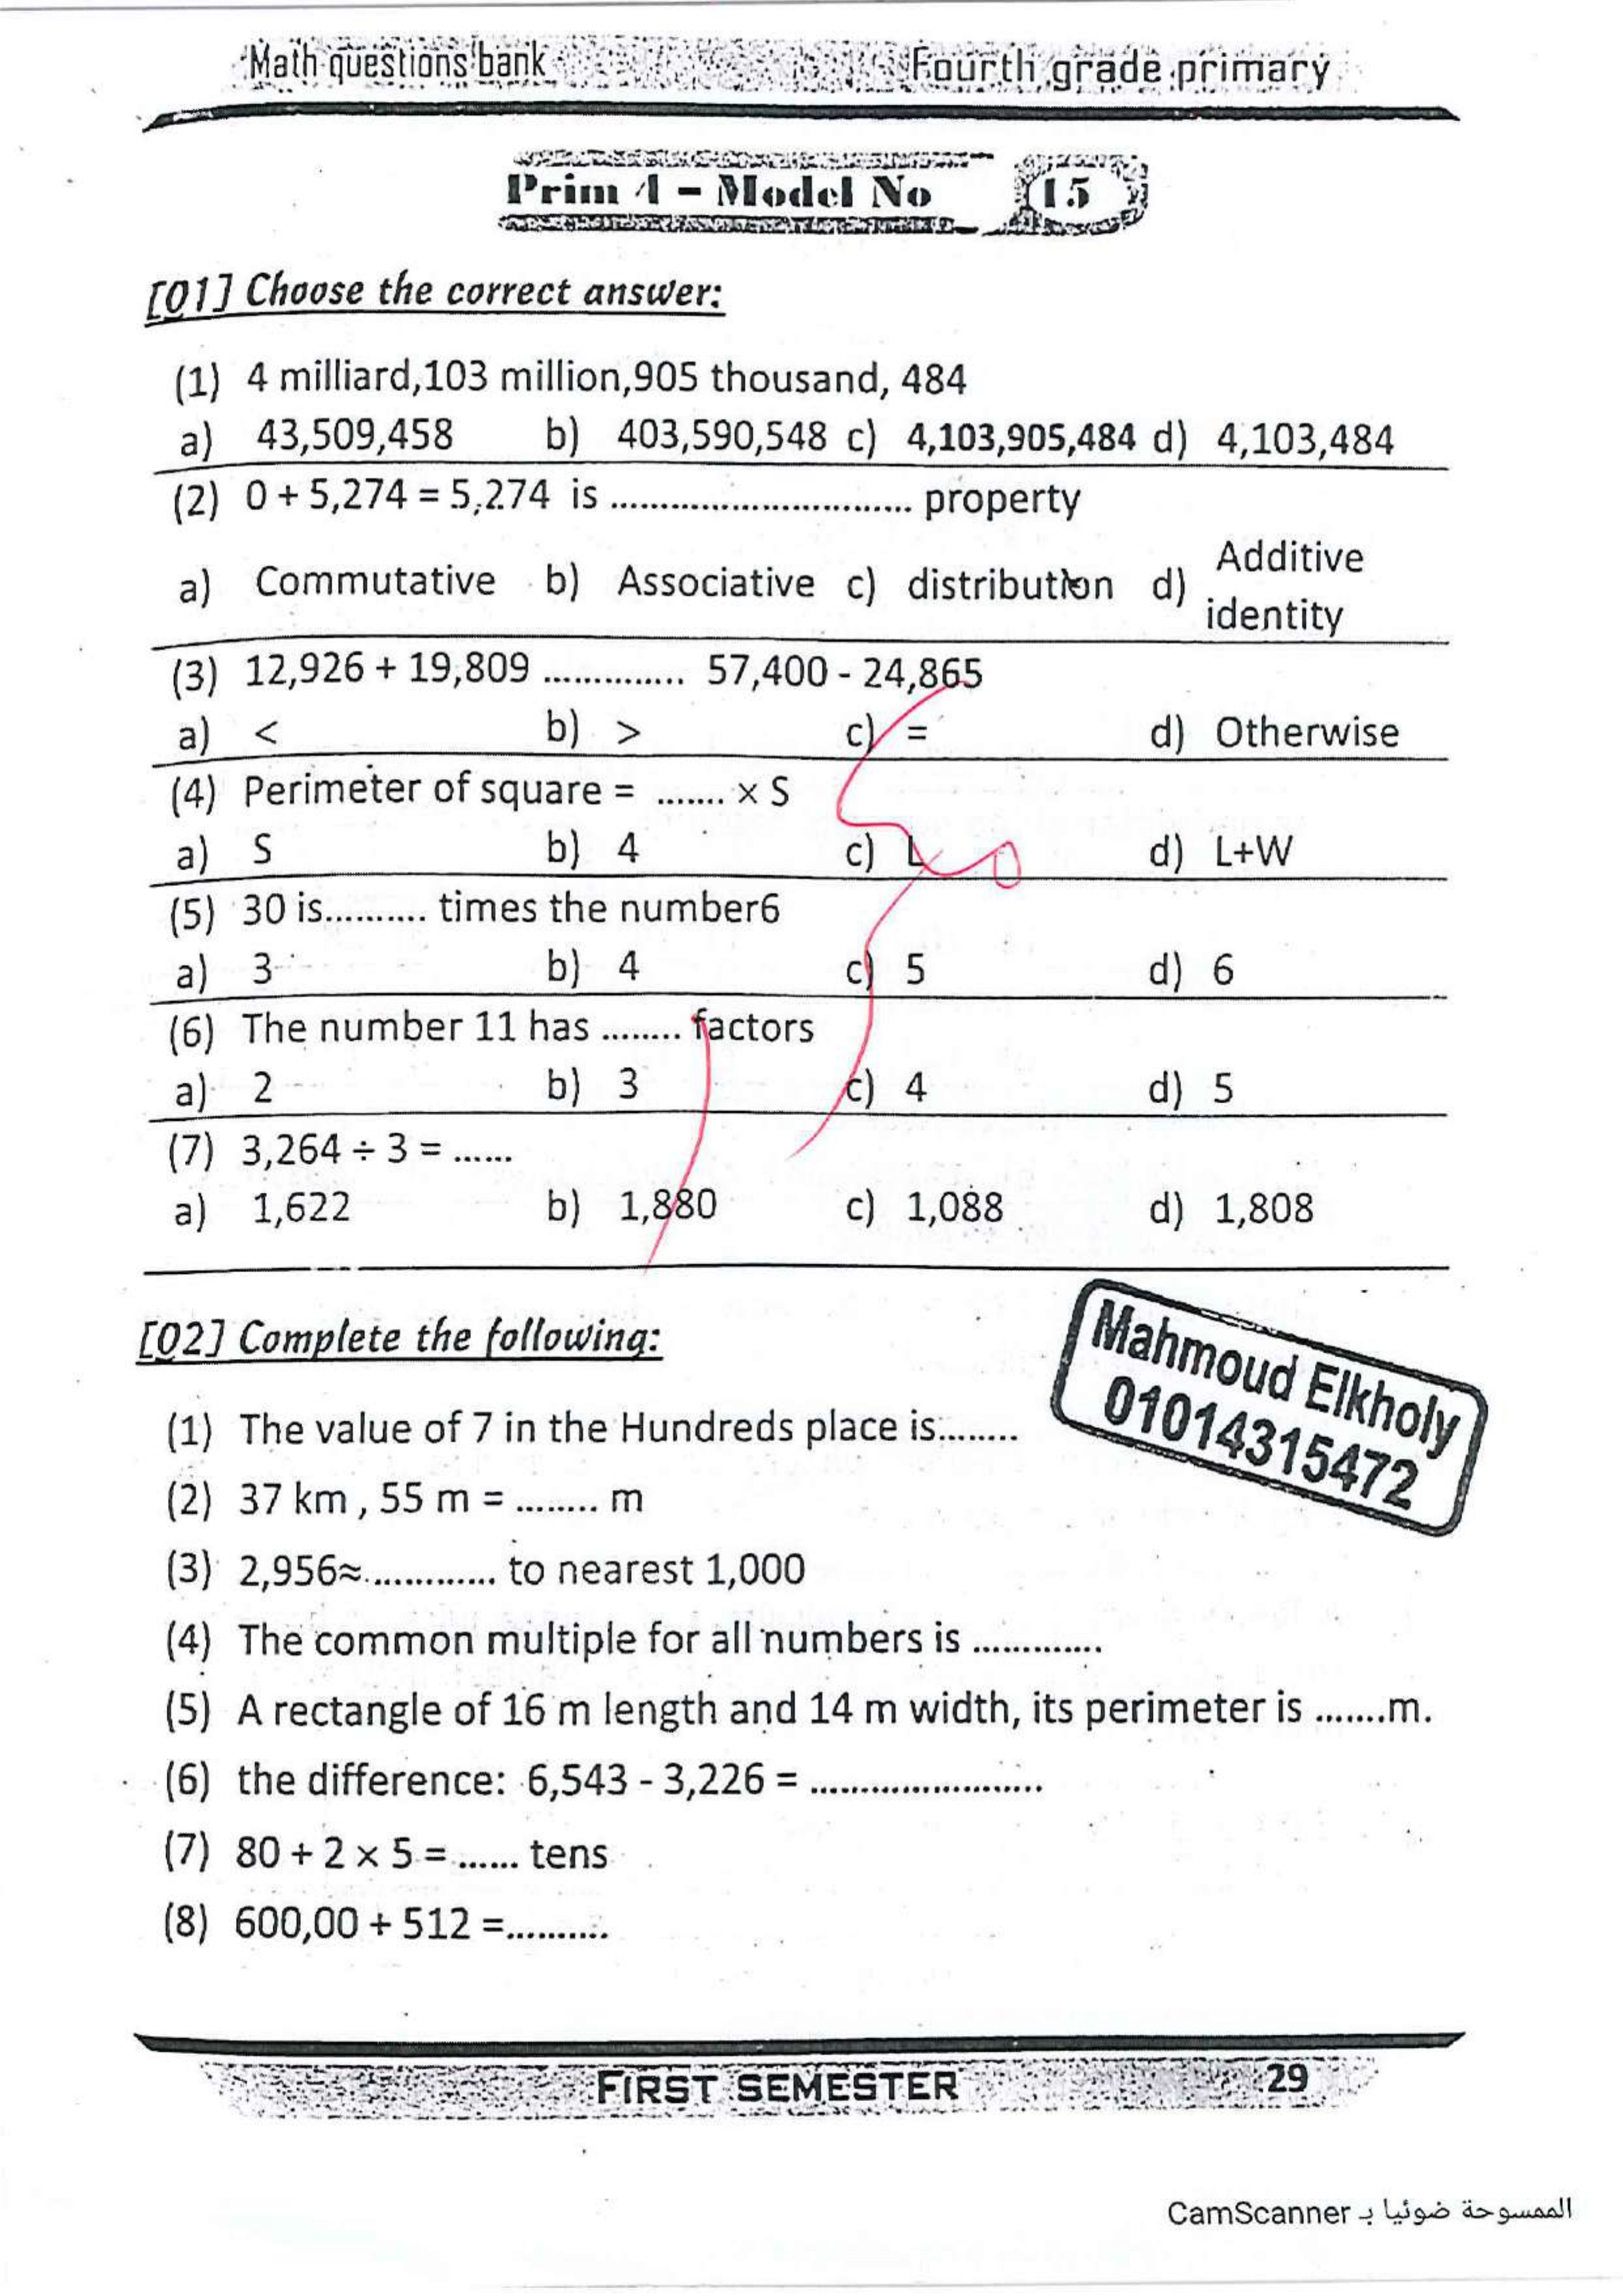 Math questions bank Fourth grade primary
Prim 4 - Model No 15
[Q1] Choose the correct answer:
(1) 4 milliard,103 million,905 thousand, 484
a) 43,509,458 b) 403,590,548 c) 4,103,905,484 d) 4,103,484
(2) 0 + 5,274 = 5,274 is .............................. property
a) Commutative b) Associative c) distribution d) Additive identity
(3) 12,926 + 19,809 .............. 57,400 - 24,865
a) < b) > c) = d) Otherwise
(4) Perimeter of square = ....... × S
a) S b) 4 c) L d) L+W
(5) 30 is.......... times the number6
a) 3 b) 4 c) 5 d) 6
(6) The number 11 has ........ factors
a) 2 b) 3 c) 4 d) 5
(7) 3,264 ÷ 3 = ......
a) 1,622 b) 1,880 c) 1,088 d) 1,808
[Q2] Complete the following:
Mahmoud Elkholy
01014315472
(1) The value of 7 in the Hundreds place is........
(2) 37 km , 55 m = ........ m
(3) 2,956≈............. to nearest 1,000
(4) The common multiple for all numbers is .............
(5) A rectangle of 16 m length and 14 m width, its perimeter is .......m.
(6) the difference: 6,543 - 3,226 = .......................
(7) 80 + 2 × 5 = ...... tens
(8) 600,00 + 512 =..........
FIRST SEMESTER 29
الممسوحة ضوئيا بـ CamScanner